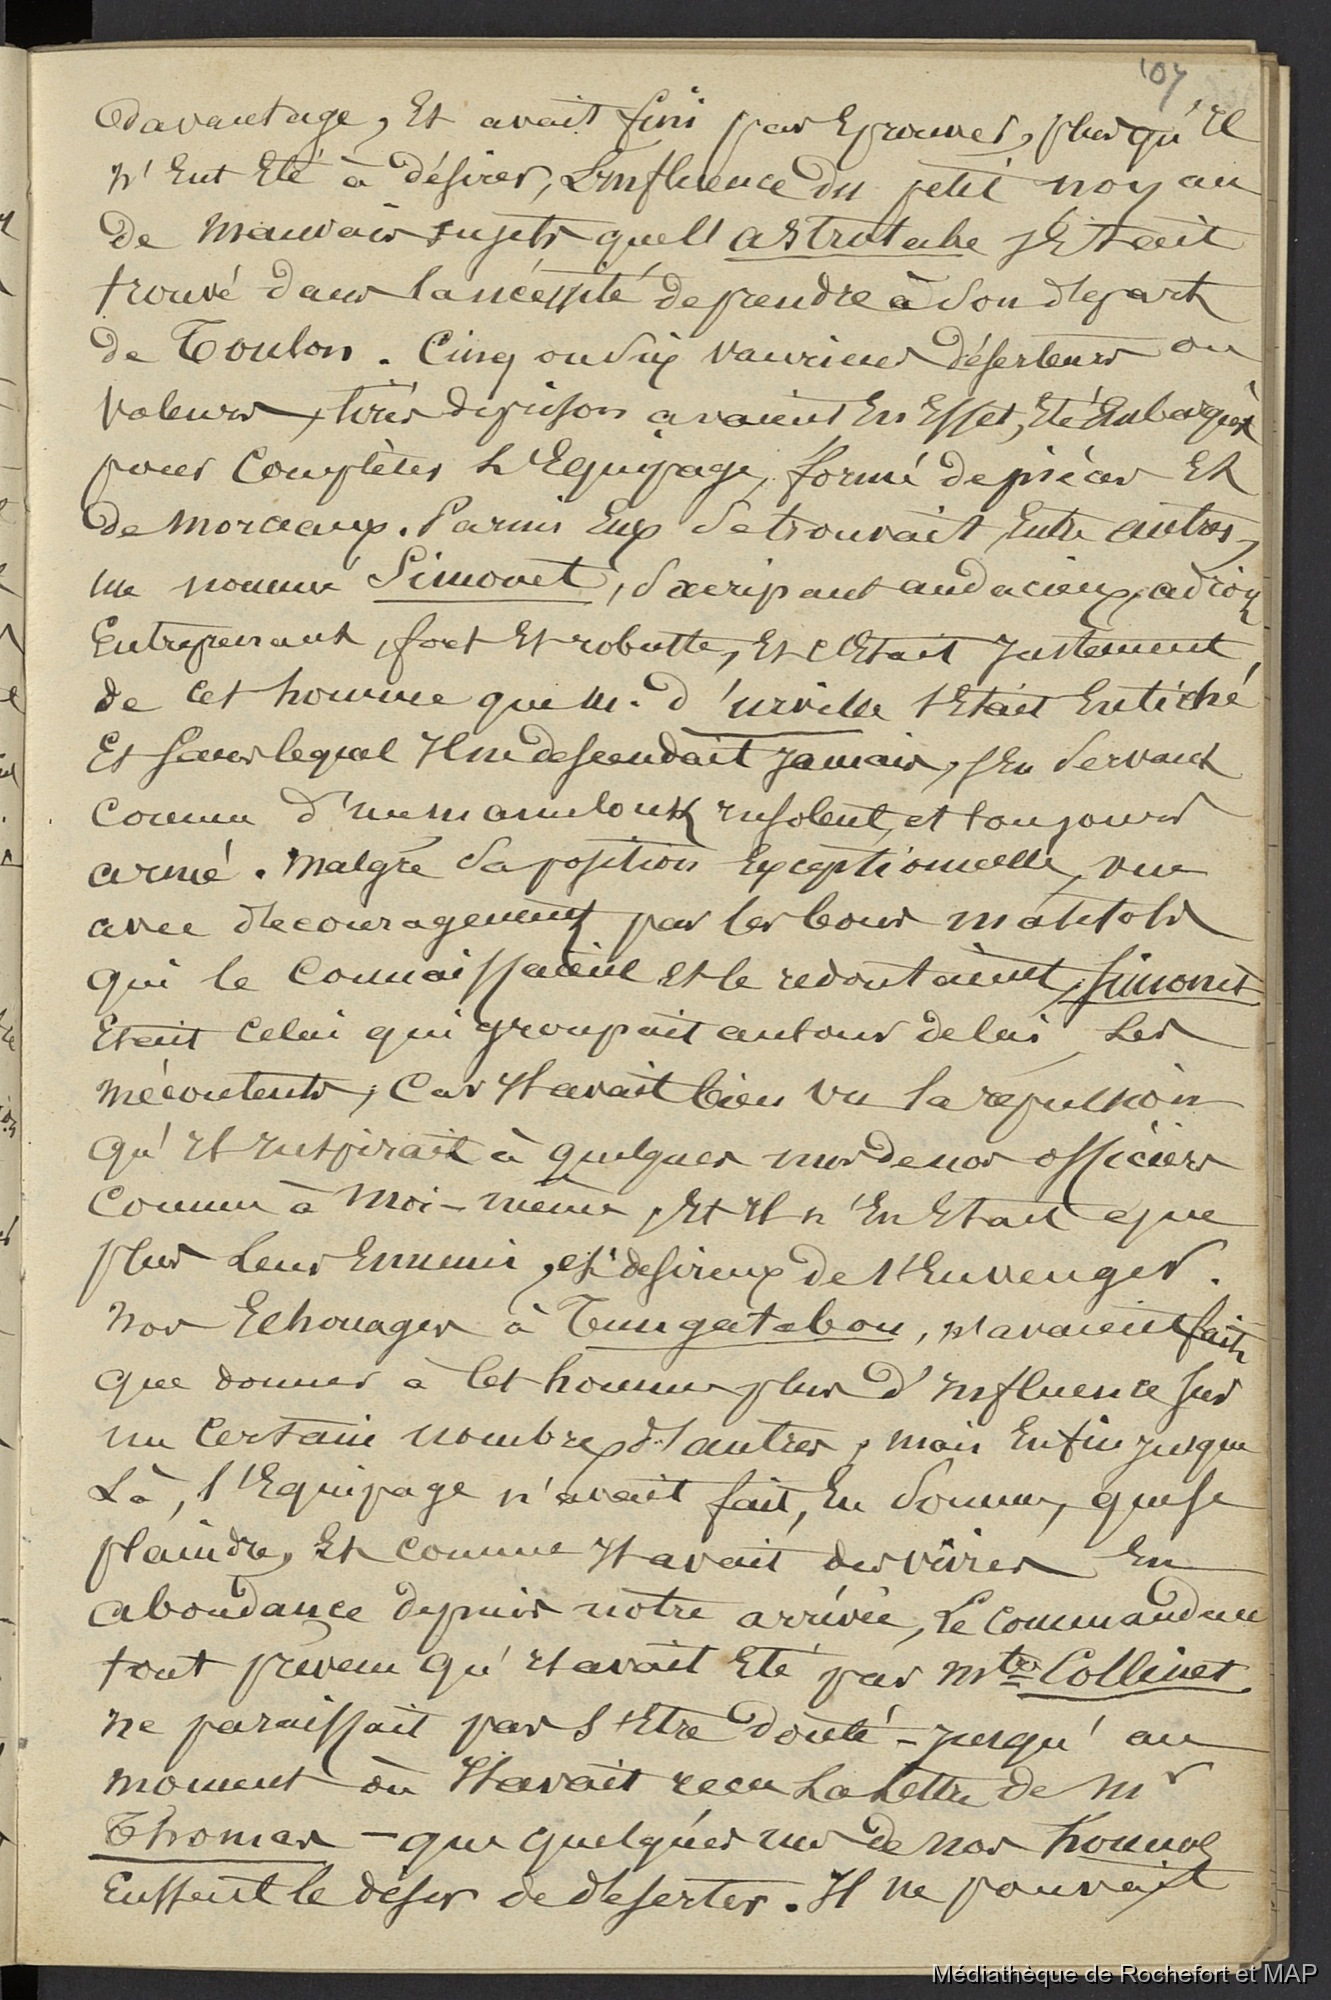 107
davantage, Et avait fini par Eprouver, plus qu'Il
n'Eut Eté à désirer, L'Influence du petit noyau
de Mauvais sujets que l'Astrolabe s'Etait
trouvé dans la nécessité de prendre à Son départ
de Toulon. Cinq ou Six vauriens déserteurs ou
voleurs, tirés de prison avaient En Effet, Eté Embarqués
pour Compléter L'Equipage, formé de pièces Et
de Morceaux. Parmi Eux Se trouvait, Entre autres,
un nommé Simonet, Sacripant audacieux, adroit
Entreprenant, fort Et robuste, Et c'Etait Justement
de Cet homme que M. d'Urville s'Etait Entiché
Et Sans lequel Il ne descendait Jamais, s'En Servant
Comme d'un mamelouk Insolent, et toujours
armé. Malgré Sa position Exceptionnelle, vue
avec découragement par les bons matelots
qui le Connaissaient et le redoutaient, Simonet
Etait Celui qui groupait autour de lui Les
mécontents, Car Il avait bien vu la répulsion
qu'Il Inspirait à quelques uns de nos officiers
Comme à Moi-même, Et Il n'En Etait que
plus Leur Ennemi, et désireux de s'En venger.
Nos Echouages à Tungatabou, n'avaient fait
que donner à Cet homme plus d'Influence Sur
un Certain nombre d'autres, mais Enfin Jusque
Là, l'Equipage n'avait fait, En Somme, que se
plaindre, Et comme Il avait des vivres En
abondance depuis notre arrivée, Le Commandant
tout prévenu qu'Il avait Eté par Mtre Collinet
ne paraissait pas s'Etre douté - Jusqu'au
moment où Il avait reçu La Lettre de Mr
Thomas - que quelques uns de nos hommes
Eussent le désir de déserter. Il ne pouvait
Médiathèque de Rochefort et MAP